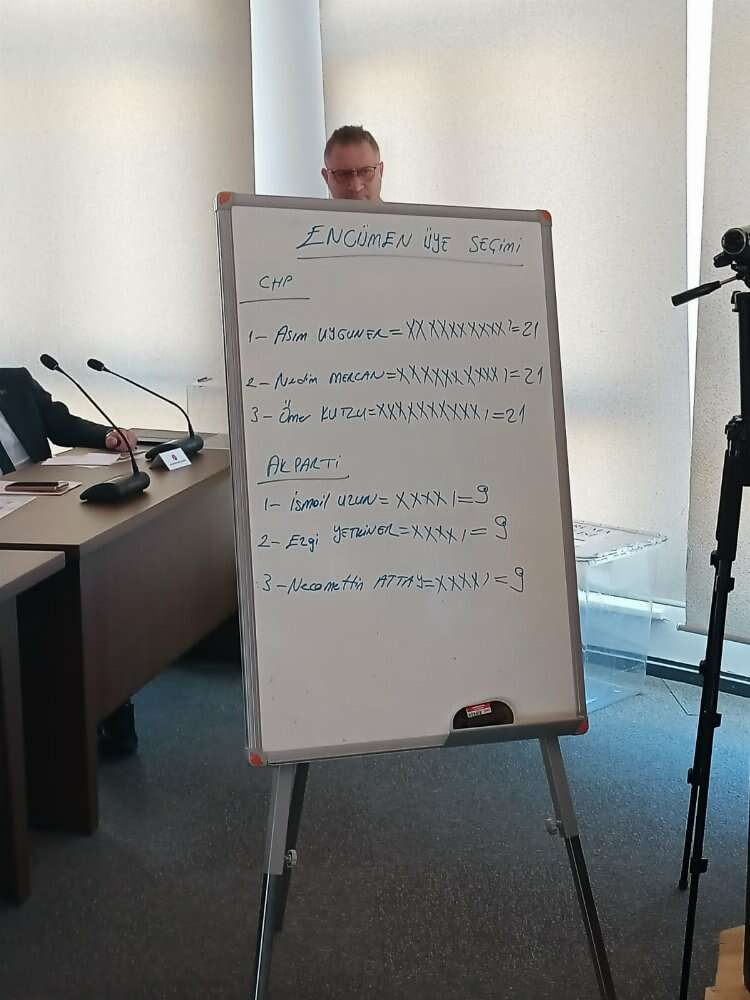 ENCÜMEN ÜYE SEÇİMİ
CHP
1- ASIM UYGUNER=XXXXXXXXXX1=21
2- Nedim MERCAN=XXXXXXXXXX1=21
3- Ömer KUTLU=XXXXXXXXXX1=21
AKPARTİ
1- İsmail UZUN=XXXX1=9
2- Ezgi YETKİNER=XXXX1=9
3- Necamettin ATTAY=XXXX1=9